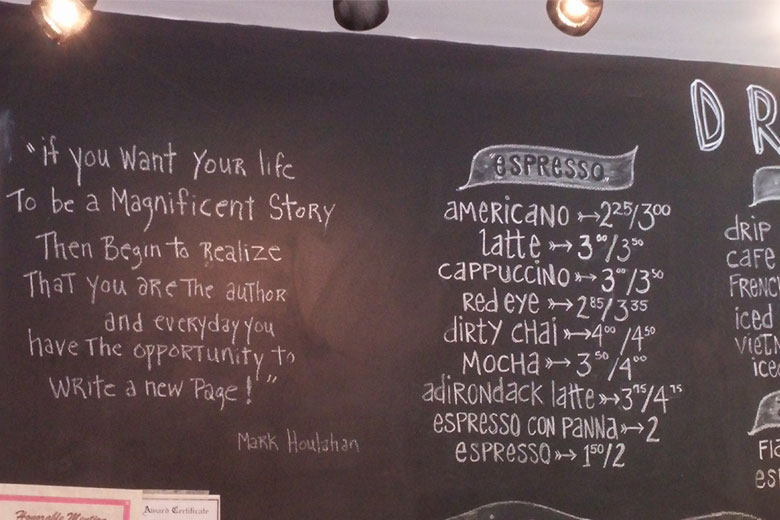 "if you want your life
To be a Magnificent Story
Then Begin to Realize
That you are the author
and everyday you
have the opportunity to
write a new Page!"
Mark Houlahan
"ESPRESSO"
americano 2 25/3 00
latte 3 00/3 50
cappuccino 3 00/3 50
red eye 2 85/3 35
dirty chai 4 00/4 50
mocha 3 50/4 00
adirondack latte 3 75/4 75
espresso con panna 2
espresso 1 50/2
DR
drip
cafe
French
iced
Vietn
iced
esp
Honorable Mention
Award Certificate